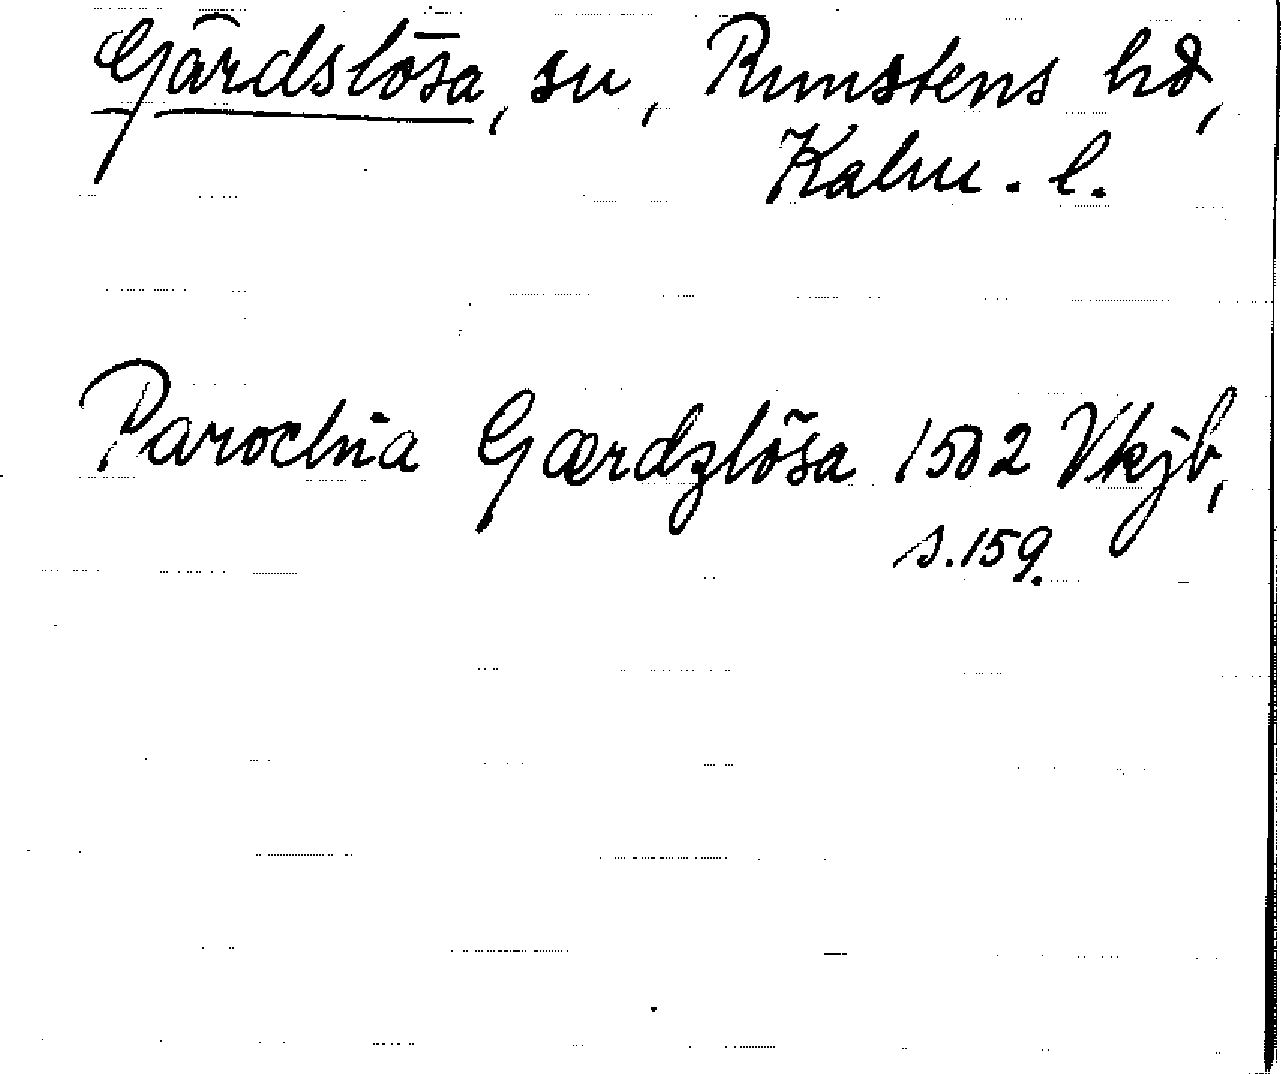 Gärdslösa, sn, Runstens hd,
Kalm. l.
Parochia Gærdzlösa 1502 Vkjb,
s. 159.